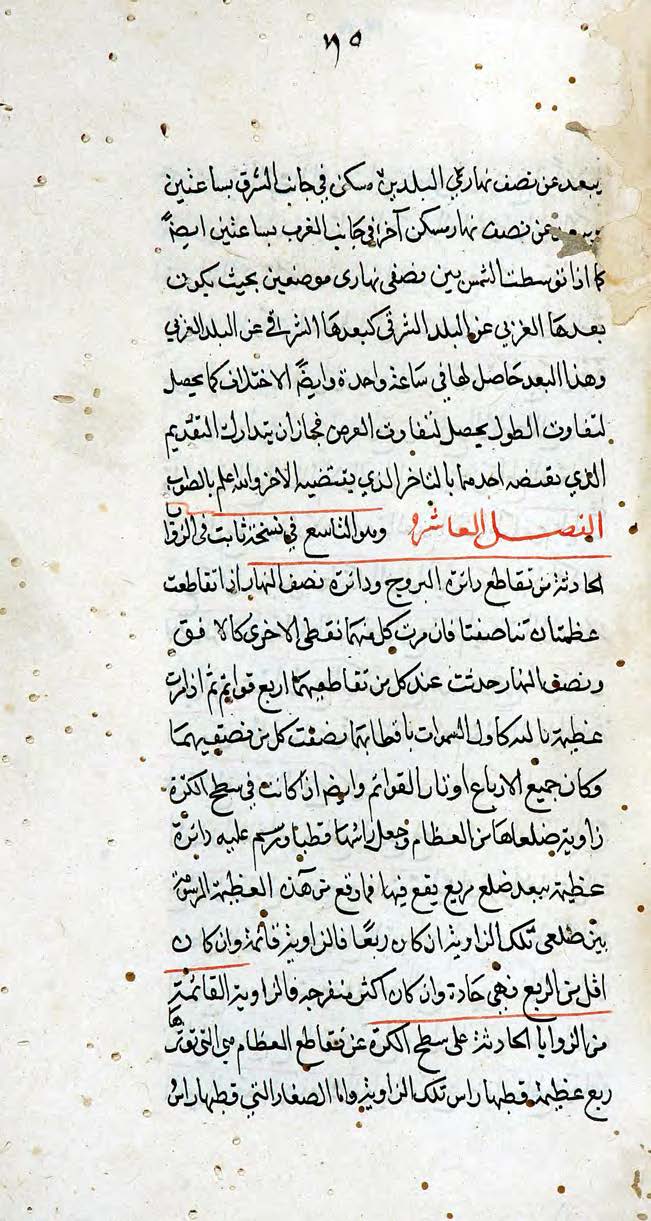 ٦٥
يبعد عن نصف نهاري البلدين مسكن في جانب الشرق بساعتين
عن نصف نهار مسكن آخر في جانب الغرب بساعتين ايضا
كما اذا توسطت الشمس بين نصفي نهاري موضعين بحيث يكون
بعدها الغربي عن البلد الشرقي كبعدها الشرقي عن البلد الغربي
وهذا البعد حاصل لها في ساعة واحدة وايضا الاختلاف كما يحصل
لتفاوت الطول يحصل لتفاوت العرض فجاز ان يتدارك التقديم
الذي يقتضيه احدهما بالتاخر الذي يقتضيه الاخر والله اعلم بالصواب
الفصل العاشر وهو التاسع في نسخة ثابت في الزوايا
الحادثة من تقاطع دائرة البروج ودائرة نصف النهار اذا تقاطعت
عظيمتان تناصفتا فان مرت كل منهما بقطبي الاخرى كالافق
ونصف النهار حدثت عند كل من تقاطعيهما اربع قوائم ثم اذا مرت
عظيمة ثالثة كاول السموات باقطابهما نصفت كل من نصفيهما
وكان جميع الارباع اوتار القوائم وايضا اذا كانت في سطح الكرة
زاوية ضلعاها من العظام وجعل راسها قطبا ورسم عليه دائرة
عظيمة ببعد ضلع مربع يقع فيها فما وقع من هذه العظيمة المرسومة
بين ضلعي تلك الزاوية ان كان ربعا فالزاوية قائمة وان كان
اقل من الربع فهي حادة وان كان اكثر منفرجه فالزاوية القائمة
من الزوايا الحادثة على سطح الكرة عن تقاطع العظام هي التي توترها
ربع عظيمة قطبها راس تلك الزاوية واما الصغار التي قطبها راس